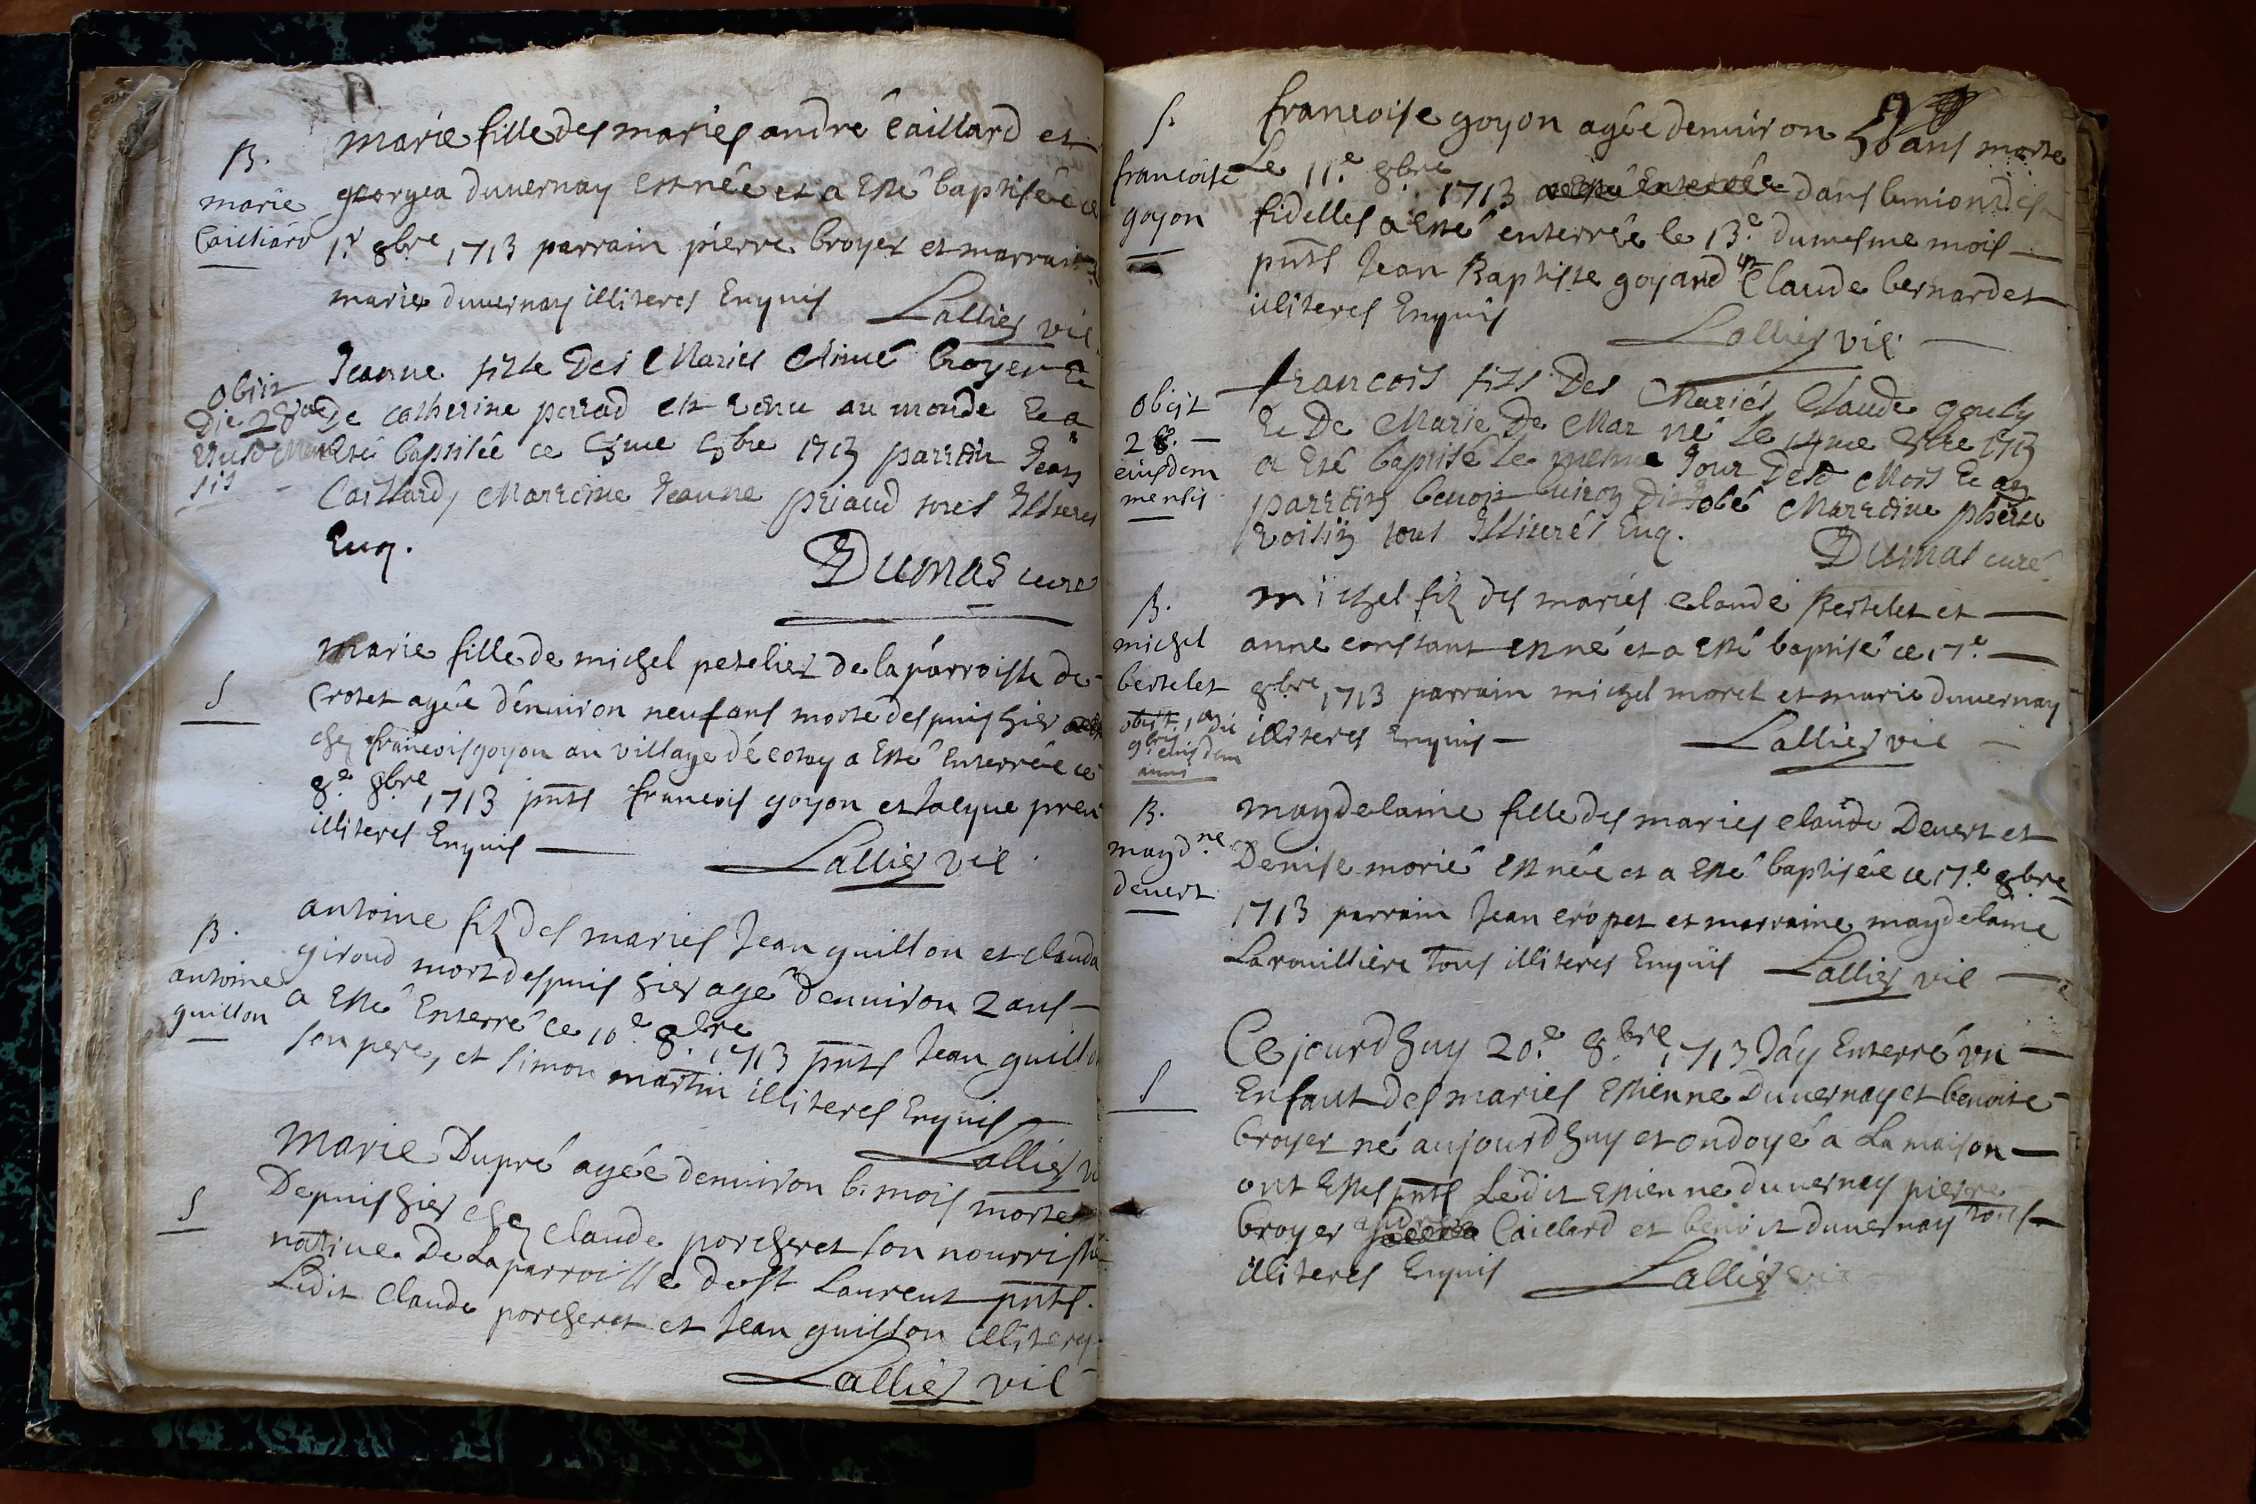 B.
marie
Cailliard
marie fille des mariés andré Caillard et
georgea duvernay est née et a esté baptisée ce
1.r 8bre 1713 parrain pierre broyer et marraine
marie duvernay illiteres Enquis
Lallier vic.
obiit
Die 28
Jeanne fille Des Mariés Aimé broyer Et
De Catherine perrad est venue au monde Et a
Eté baptisée ce 8bre 1713 parrain Jean
Caillard, Marraine Jeanne priaud tous Illiterés
Enq.
Dumas curé
S
marie fille de michel petelier de la parroisse de
Crotet agée d'environ neuf ans morte despuis hier
chez françois goyon au village dé cotay a Esté Enterrée ce
8.e 8bre 1713 pnts francois goyon et Jacque
illiteres Enquis
Lallier vic.
B.
antoine
guillon
antoine fils des mariés Jean guillon et clauda
giroud mort despuis hier agé d'environ 2 ans
a Esté Enterré ce 10.e 8.bre 1713 pnts Jean guillon
son pere, et simon martin illiteres Enquis
Lallier vi
S
Marie Dupré agée denviron 6. mois morte
Depuis hier chez Claude porcheret son nourrissie
native De La parroisse de st Laurent pnts.
Ledit Claude porcheret et Jean guillon illiteres
Lallier vic
S.
francoise
goyon
francoise goyon agée denviron 50 ans morte
Le 11.e 8bre 1713 a Esté Enterrée dans lunion des
fidelles a Esté enterrée le 13.e du mesme mois
pnts Jean Baptiste goyard et Claude bernardet
illiteres Enquis
Lallier vic.
obijt
28.
eiusdem
mensis
francois fils Des Mariés Claude gouly
Et De Marie De Mar né le 14me 8bre 1713
a Eté baptisé le mesme Jour Desd Mois Et an
parrain benoit Marraine
voisin tous Illiterés Enq.
Dumas curé
B.
michel
bertelet
obiit 1a die
9bris eiusdem
anni
michel fils des mariés claude Bertelet et
anne constant est né et a esté baptisé ce 17.e
8.bre 1713 parrain michel moret et marie duvernay
illiteres Enquis
Lallier vic
B.
magd.ne
devert
magdelaine fille des mariés claude Devert et
Denise morié est née et a Esté baptisée ce 17.e 8.bre
1713 parrain Jean cropet et marraine magdelaine
Larouilliere tous illiteres Enquis Lallier vic
S
Ce jourdhuy 20.e 8.bre 1713 Jáy Enterré vn
Enfant des mariés Estienne Duvernay et benoite
broyer né aujourdhuy et ondoyé a La maison
ont Estes pnts Ledit Estienne duvernay pierre
broyer andré Caillard et benoit duvernay tous
illiteres Enquis Lallier vic